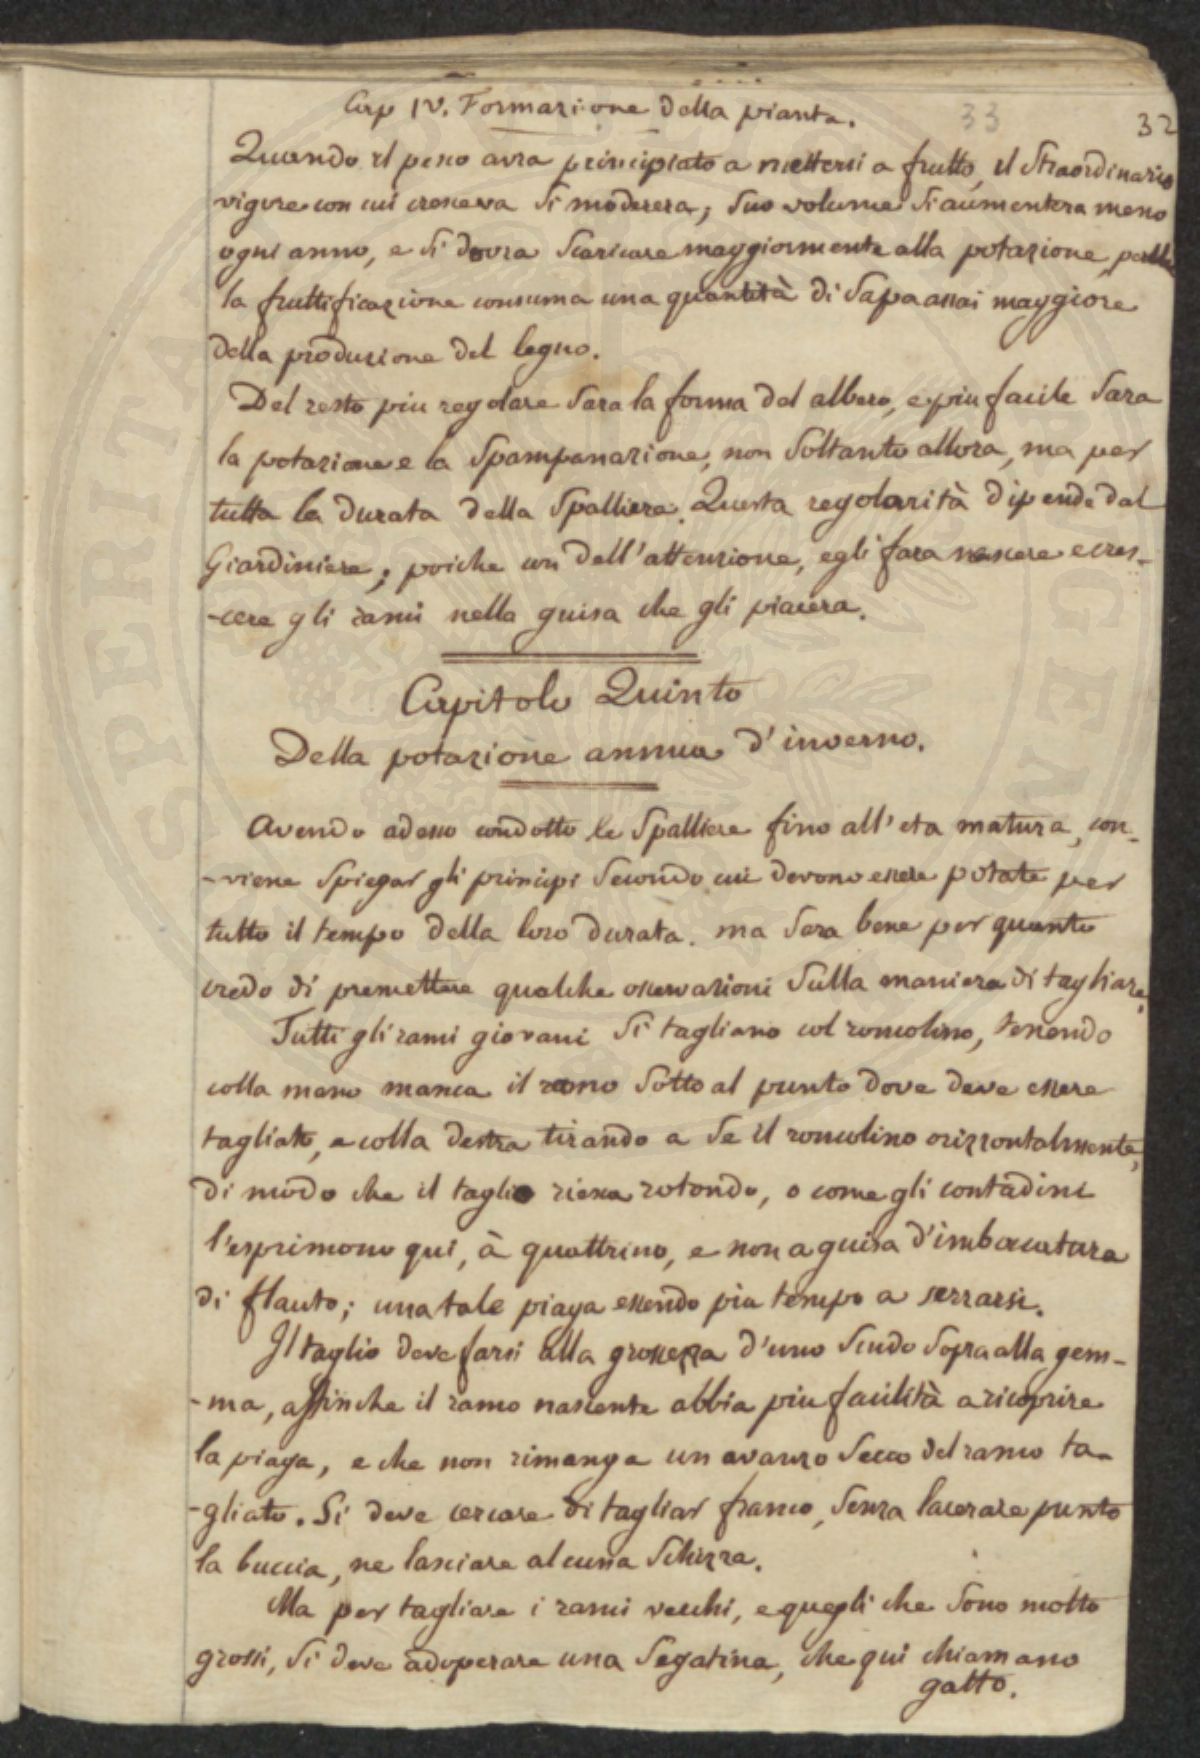 Cap IV. Formazione della pianta.
33
32
Quando il peso avra principiato a mettersi a frutto, il straordinario
vigore con cui cresceva si moderera; suo volume si aumentera meno
ogni anno, e si dovra scaricare maggiormente alla potazione, perche
la fruttificazione consuma una quantità di sapa assai maggiore
della produzione del legno.
Del resto piu regolare sara la forma del albero, e piu facile sara
la potazione e la spampanazione, non soltanto allora, ma per
tutta la durata della spalliera. Questa regolarità dipende dal
Giardiniere; poiche con dell'attenzione, egli fara nascere e cres-
-cere gli rami nella guisa che gli piacera.
Capitolo Quinto
Della potazione annua d'inverno.
Avendo adesso condotto le spalliere fino all'eta matura, con-
-viene spiegar gli principi secondo cui devono essere potate per
tutto il tempo della loro durata. ma sara bene per quanto
credo di premettere qualche osservazioni sulla maniera di tagliare.
Tutti gli rami giovani si tagliano col roncolino, tenendo
colla mano manca il ramo sotto al punto dove deve essere
tagliato, e colla destra tirando a se il roncolino orizzontalmente,
di modo che il taglio riesca rotondo, o come gli contadini
l'esprimono qui, à quattrino, e non a guisa d'imboccatura
di flauto; una tale piaga essendo piu tempo a serrarsi.
Il taglio deve farsi alla grossezza d'uno scudo sopra alla gem-
-ma, affinche il ramo nascente abbia piu facilità a ricoprire
la piaga, e che non rimanga un avanzo secco del ramo ta-
-gliato. Si deve cercare di tagliar franco, senza lacerare punto
la buccia, ne lasciare alcuna schizza.
Ma per tagliare i rami vecchi, e quegli che sono molto
grossi, si deve adoperare una segatina, che qui chiamano
gatto.